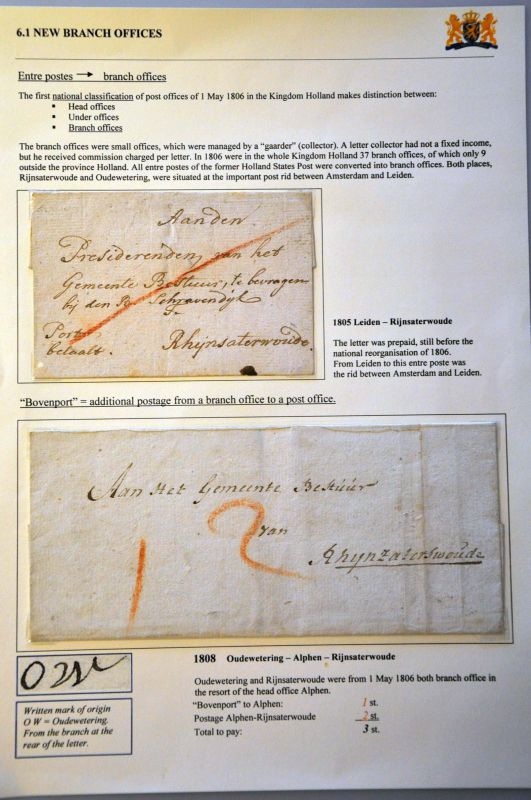 6.1 NEW BRANCH OFFICES
Entre postes → branch offices
The first national classification of post offices of 1 May 1806 in the Kingdom Holland makes distinction between:
▪ Head offices
▪ Under offices
▪ Branch offices
The branch offices were small offices, which were managed by a “gaarder” (collector). A letter collector had not a fixed income,
but he received commission charged per letter. In 1806 were in the whole Kingdom Holland 37 branch offices, of which only 9
outside the province Holland. All entre postes of the former Holland States Post were converted into branch offices. Both places,
Rijnsaterwoude and Oudewetering, were situated at the important post rid between Amsterdam and Leiden.
Aanden
Presiderenden, van het
Gemeente Bestuur, te bevragen
bij den B. Schravendijk
Port
betaalt.
Rhijnsaterwoude.
1805 Leiden – Rijnsaterwoude
The letter was prepaid, still before the
national reorganisation of 1806.
From Leiden to this entre poste was
the rid between Amsterdam and Leiden.
“Bovenport” = additional postage from a branch office to a post office.
Aan Het Gemeente Bestuur
van
Rhynzaterswoude
1 2
OW
Written mark of origin
O W = Oudewetering.
From the branch at the
rear of the letter.
1808 Oudewetering – Alphen – Rijnsaterwoude
Oudewetering and Rijnsaterwoude were from 1 May 1806 both branch office in
the resort of the head office Alphen.
“Bovenport” to Alphen: 1 st.
Postage Alphen-Rijnsaterwoude 2 st.
Total to pay: 3 st.